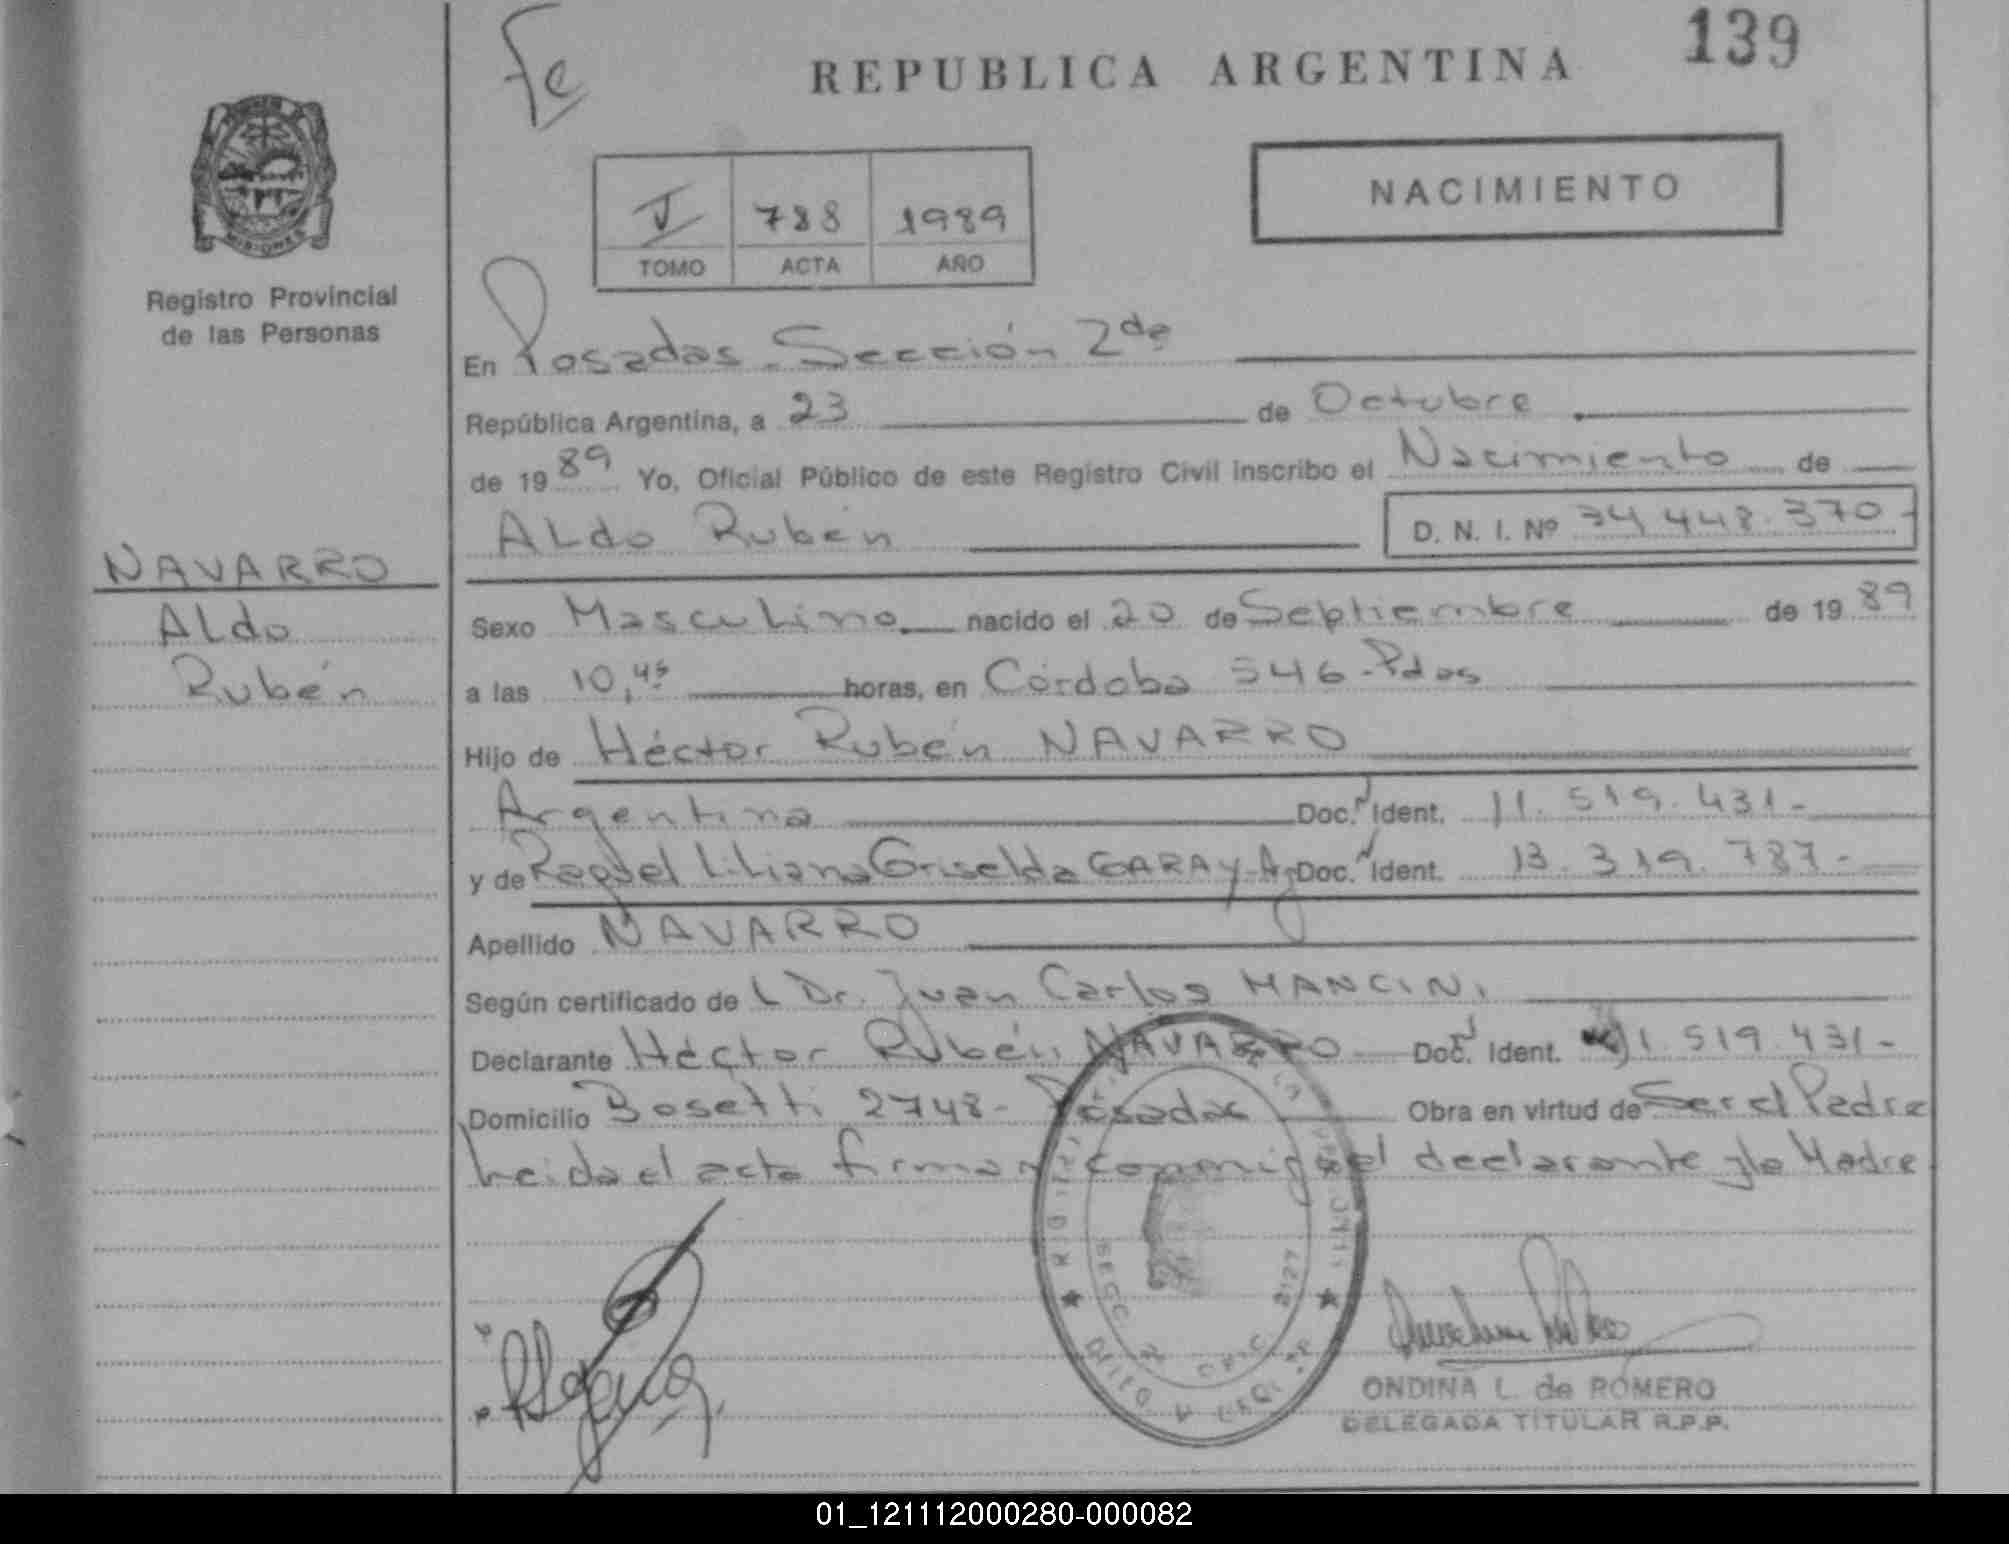 139
Fe
REPUBLICA ARGENTINA
NACIMIENTO
I 788 1989
TOMO ACTA AÑO
MISIONES
Registro Provincial
de las Personas
En Posadas - Sección 2da
República Argentina, a 23 de Octubre
de 1989 Yo, Oficial Público de este Registro Civil inscribo el Nacimiento de
Aldo Rubén D. N. I. Nº 34.448.370-
NAVARRO
Aldo
Rubén
Sexo Masculino nacido el 20 de Septiembre de 1989
a las 10,45 horas, en Córdoba 546 - Pdas
Hijo de Héctor Rubén NAVARRO
Argentina Doc. Ident. 11.519.431-
y de Raquel Liliana Griselda GARAY - Arg Doc. Ident. 13.319.787-
Apellido NAVARRO
Según certificado de L Dr. Juan Carlos MANCINI
Declarante Héctor Rubén NAVARRO Doc. Ident. 11.519.431-
Domicilio Bosetti 2748 - Posadas Obra en virtud de Ser el Padre
Leida el acta firman conmigo el declarante y la Madre
SECC
ONDINA L. de ROMERO
DELEGADA TITULAR R.P.P.
01_121112000280-000082